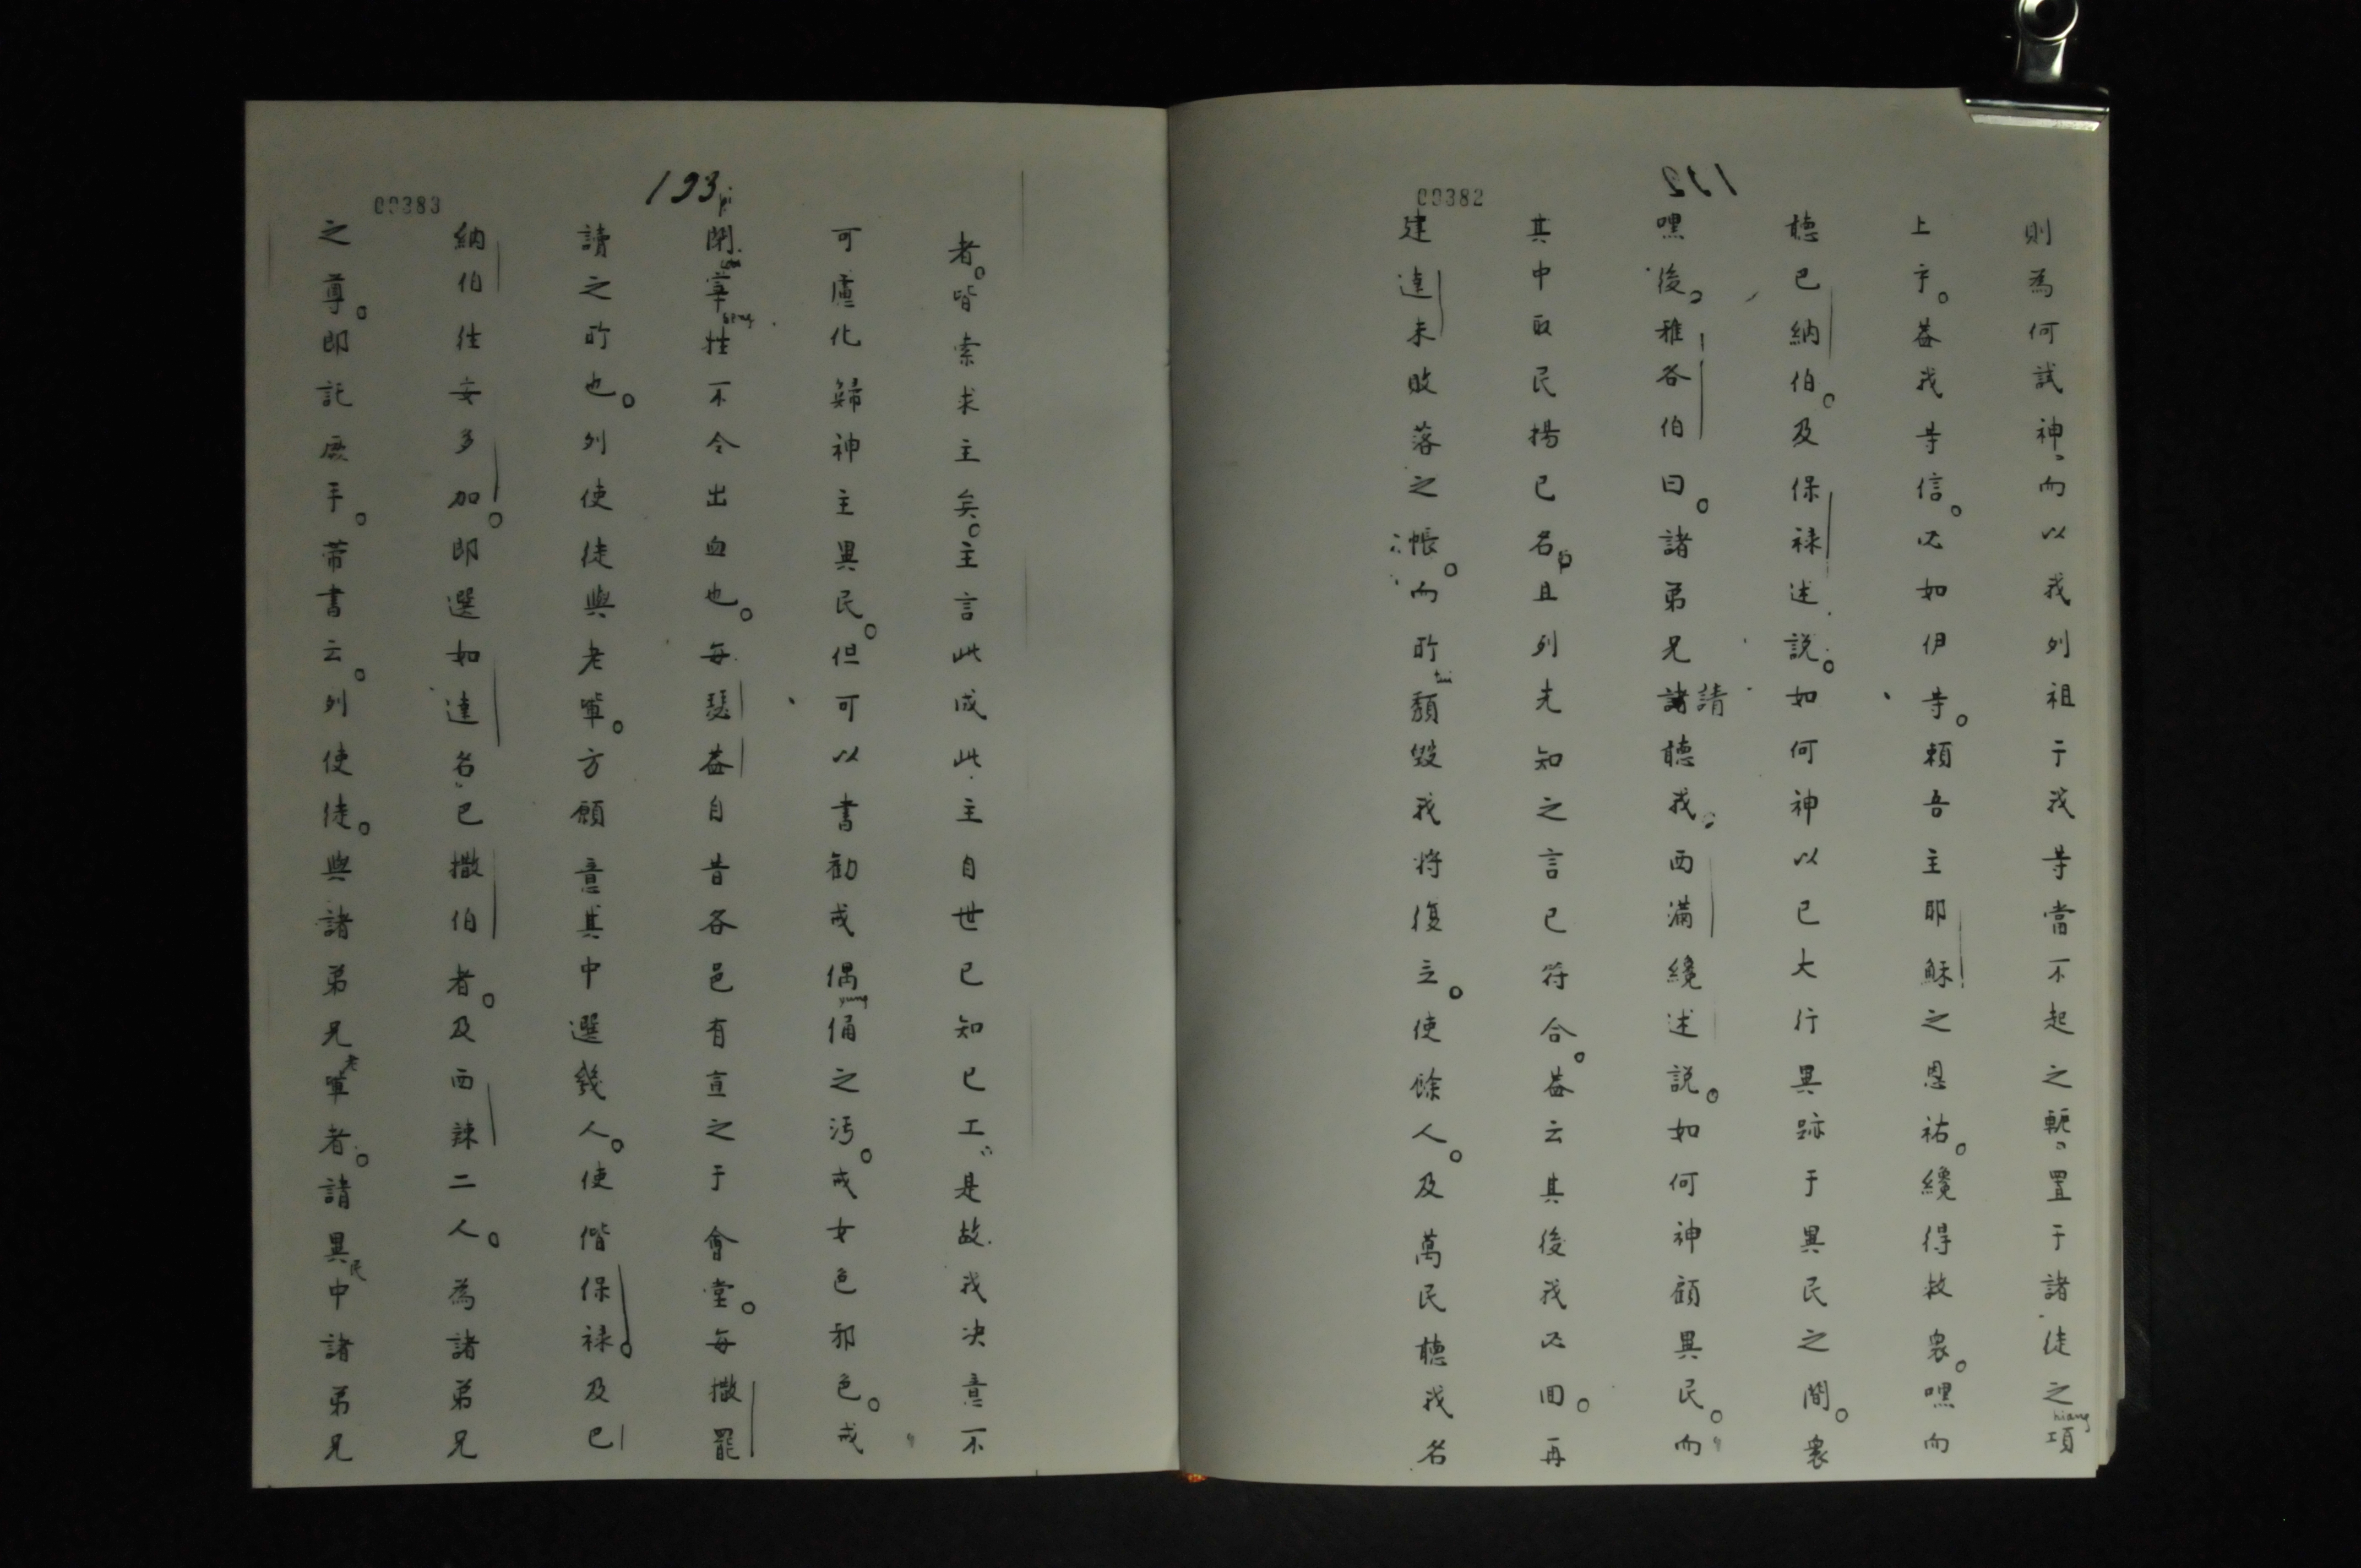 00382
132
則為何試神而以我列祖于我等當不起之軛置于諸徒之項
hiang
上乎。蓋我等信。必如伊等。賴吾主耶穌之恩祐。纔得救衆。嘿而
聽巴納伯。及保祿述說。如何神以己大行異跡于異民之間。衆
嘿後。雅各伯曰。諸弟兄請聽我。西滿纔述說。如何神顧異民。而
其中取民揚己名。且列先知之言已符合。蓋云其後我必回。再
建達未敗落之帳。而所頹毀我將復立。使餘人。及萬民聽我名
tui
00383
133
者。皆索求主矣。主言此成此主自世已知己工。是故我决意不
可慮化歸神主異民。但可以書勸戒偶俑之污。戒女色邪色。戒
yung
閉宰牲不令出血也。每瑟蓋自昔各邑有宣之于會堂。每撒罷
pi
讀之所也。列使徒與老軰。方願意其中選幾人。使偕保祿。及巴
納伯往安多加。即選如達名巴撒伯者。及西辣二人。為諸弟兄
之尊。即託厥手。帶書云。列使徒。與諸弟兄老軰者。諸異民中諸弟兄